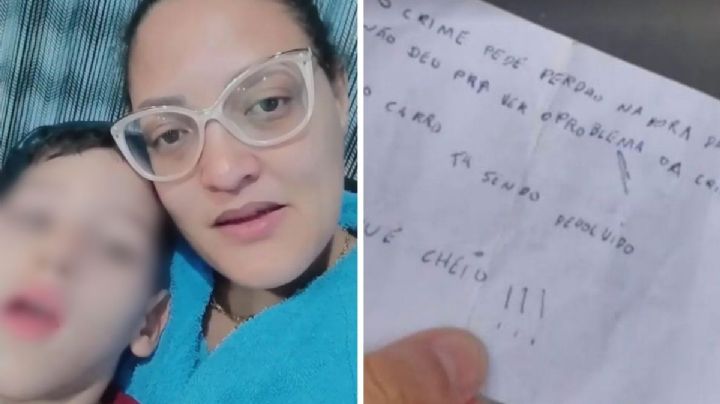 O CRIME PEDE PERDÃO NA HORA DA
NÃO DEU PRA VER O PROBLEMA DA
O CARRO
TÁ SENDO DEVOLVIDO
CHEIO !!!